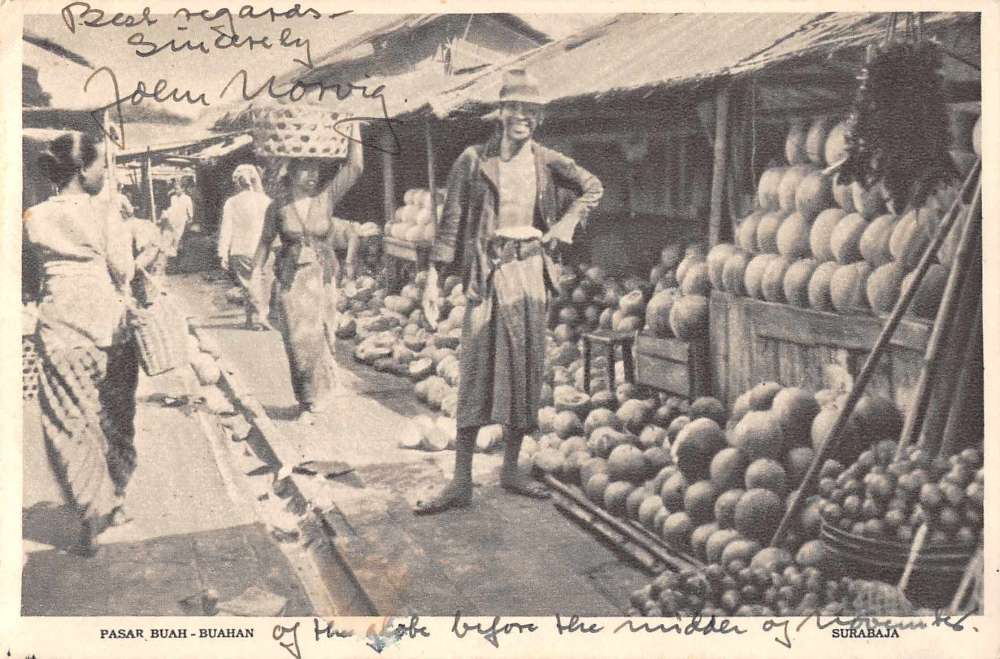 Best regards -
Sincerely
John Norvig.
PASAR BUAH - BUAHAN
of the globe before the middle of November.
SURABAJA